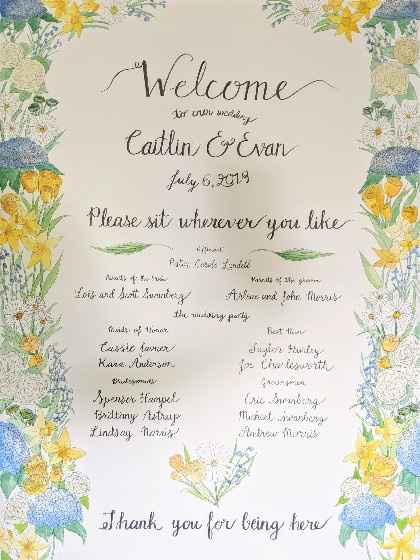 Welcome
to our wedding
Caitlin & Evan
July 6, 2019
Please sit wherever you like
Officiant
Pastor
Parents of the bride Parents of the groom
Lois and Scott Swanberg Arlene and John Morris
the wedding party
Maids of Honor Best Men
Cassie Taylor
Kara Anderson Joe Charlesworth
Bridesmaids Groomsmen
Spenser Hampel Eric Swanberg
Brittany Astrup Michael Swanberg
Lindsay Morris Andrew Morris
Thank you for being here